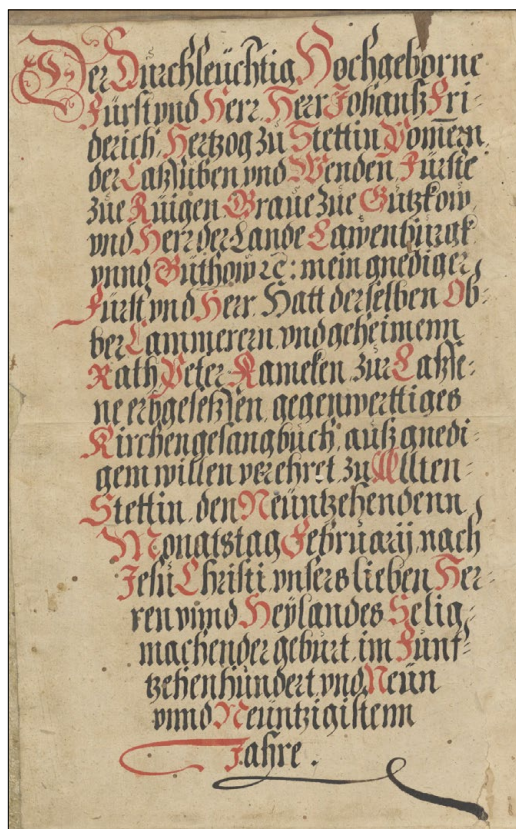 Der Durchleüchtig Hochgeborne
Fürst vnd Herr, Herr Johanß Fri-
derich, Hertzog zu Stettin Pomern,
der Caßuben vnd Wenden, Fürste
zue Rüigen Graue zue Gützkow,
vnd Herr der Lande Lawenbürgk
vnnd Büthow ꝛc: mein gnediger
Fürst vnd Herr, Hatt derselben Ob-
ber Cammerern vnd geheimenn
Rath Peter Kameken, zur Caßie-
ne erbgeseßßen, gegenwerttiges
Kirchengesangbuch, auß gnedi-
gem willen verehret, zu Allten-
Stettin, den Neüntzehendenn
Monatstag Februarij, nach
Jesu Christi vnsers lieben Her-
ren vnnd Heÿlandes Selig-
machender gebürt, im Fünf-
tzehenhündert vnd Neün
vnnd Neüntzigistenn
Jahre.